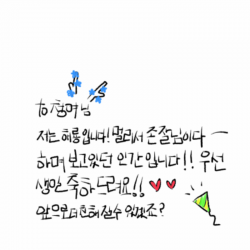 to 형며님
저는 혜룡입니다! 멀리서 존잘님이다ㅡ
하며 보고있던 인간입니다!! 우선
생일 축하 드려요!!
앞으로 더 친해질수 있겠죠?